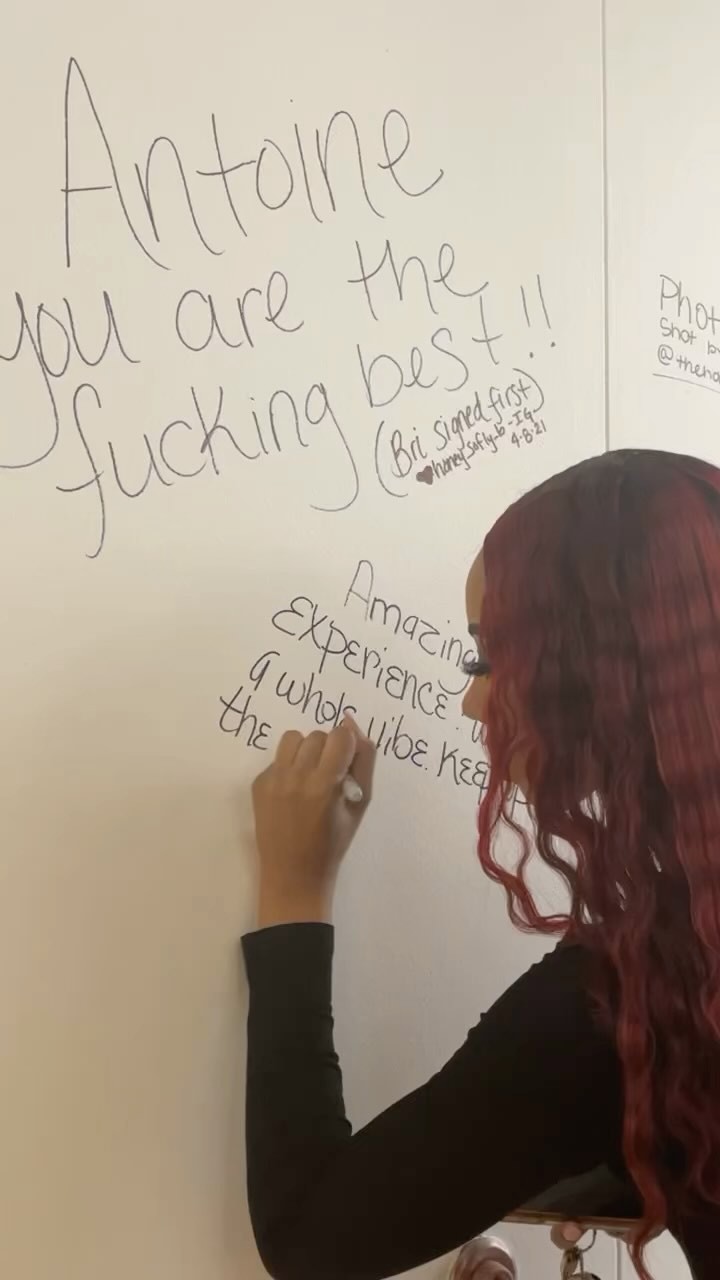 Antoine
you are the
fucking best!!
(Bri signed first)
honey_softly_b - IG
4-8-21
Amazing
Experience.
a whole vibe. Keep
the
Phot
Shot